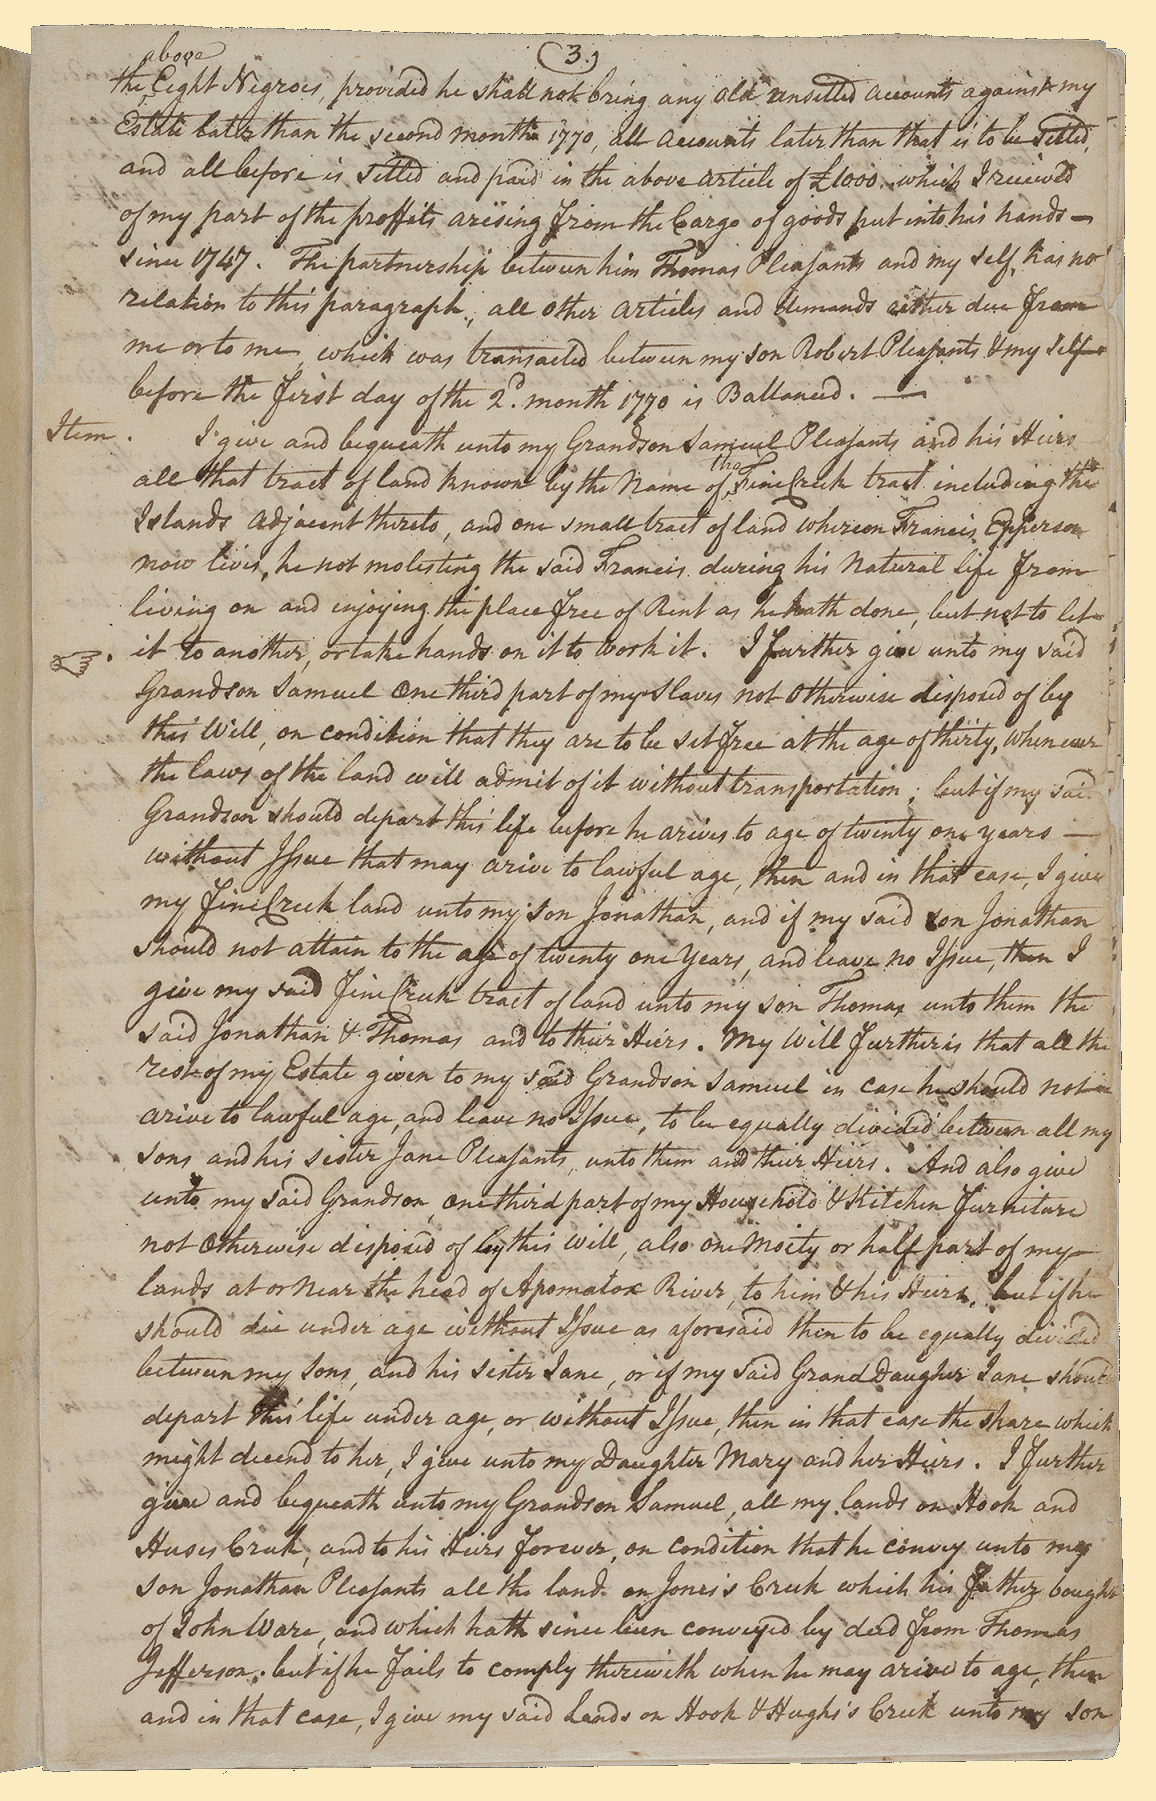 (3.)
above
the Eight Negroes, provided he shall not bring any old unsettled accounts against my
Estate later than the second month 1770, all accounts later than that is to be setled,
and all before is setled and paid in the above article of £1000. which I received
of my part of the proffits arising from the Cargo of goods put into his hands —
since 1747. The partnership between him Thomas Pleasants and my self, has no
relation to this paragraph, all other articles and demands either due from
me or to me which was transacted between my son Robert Pleasants & my self
before the first day of the 2d. month 1770 is Ballanced. —
Item. I give and bequeath unto my Grandson Samuel Pleasants and his Heirs
the
all that tract of land known by the Name of Fine Creek tract including the
Islands adjacent thereto, and one small tract of land whereon Francis Epperson
now lives, he not molesting the said Francis during his Natural life from
living on and enjoying the place free of Rent as he hath done, but not to let
it to another, or take hands on it to work it. I further give unto my said
Grandson Samuel One third part of my Slaves not Otherwise disposed of by
this Will, on condition that they are to be set free at the age of thirty, whenever
the laws of the land will admit of it without transportation; but if my said
Grandson should depart this life before he arives to age of twenty one years —
without Issue that may arive to lawful age, then and in that case, I give
my Fine Creek land unto my son Jonathan, and if my said son Jonathan
should not attain to the age of twenty one Years, and leave no Issue, then I
give my said Fine Creek tract of land unto my son Thomas unto them the
said Jonathan & Thomas and to their Heirs. My Will further is that all the
rest of my Estate given to my said Grandson Samuel in case he should not
arive to lawful age, and leave no Issue, to be equally divided between all my
sons and his sister Jane Pleasants, unto them and their Heirs. And also give
unto my said Grandson, one third part of my Household & Kitchen furniture
not Otherwise disposed of by this will, also one Moity or half part of my
lands at or near the head of Apomatox River, to him & his Heirs, but if he
should die under age without Issue as aforesaid then to be equally divided
between my Sons, and his sister Jane, or if my said Grand Daugher Jane should
depart this life under age, or without Issue, then in that case the share which
might decend to her, I give unto my Daughter Mary and her Heirs. I further
give and bequeath unto my Grandson Samuel, all my lands on Hook and
Huses Creek, and to his Heirs forever, on condition that he convey unto my
son Jonathan Pleasants all the land on Jones's Creek which his father bought
of John Ware, and which hath since been conveyed by deed from Thomas
Jefferson, but if he fails to comply therewith when he may arive to age, then
and in that case, I give my said Lands on Hook & Hughs's Creek unto my son